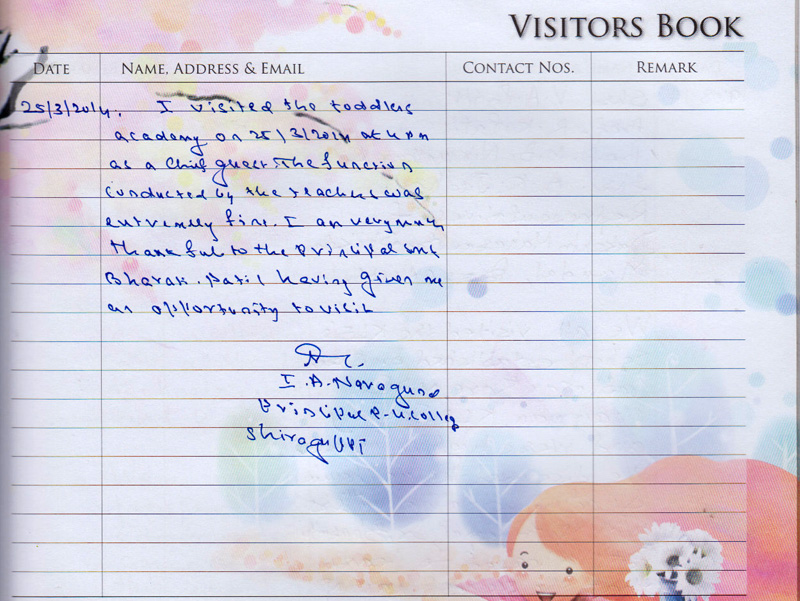 VISITORS BOOK
DATE NAME, ADDRESS & EMAIL CONTACT NOS. REMARK
25/3/2014. I visited the toddlers
academy on 25/3/2014 at 4 pm
as a Chief guest. The function
conducted by the teachers was
extremely fine. I am very much
thankful to the Principal Smt
Bharati. Patil having given me
an opportunity to visit
I. A. Naragund
Principal P.U. College
Shiraguppi